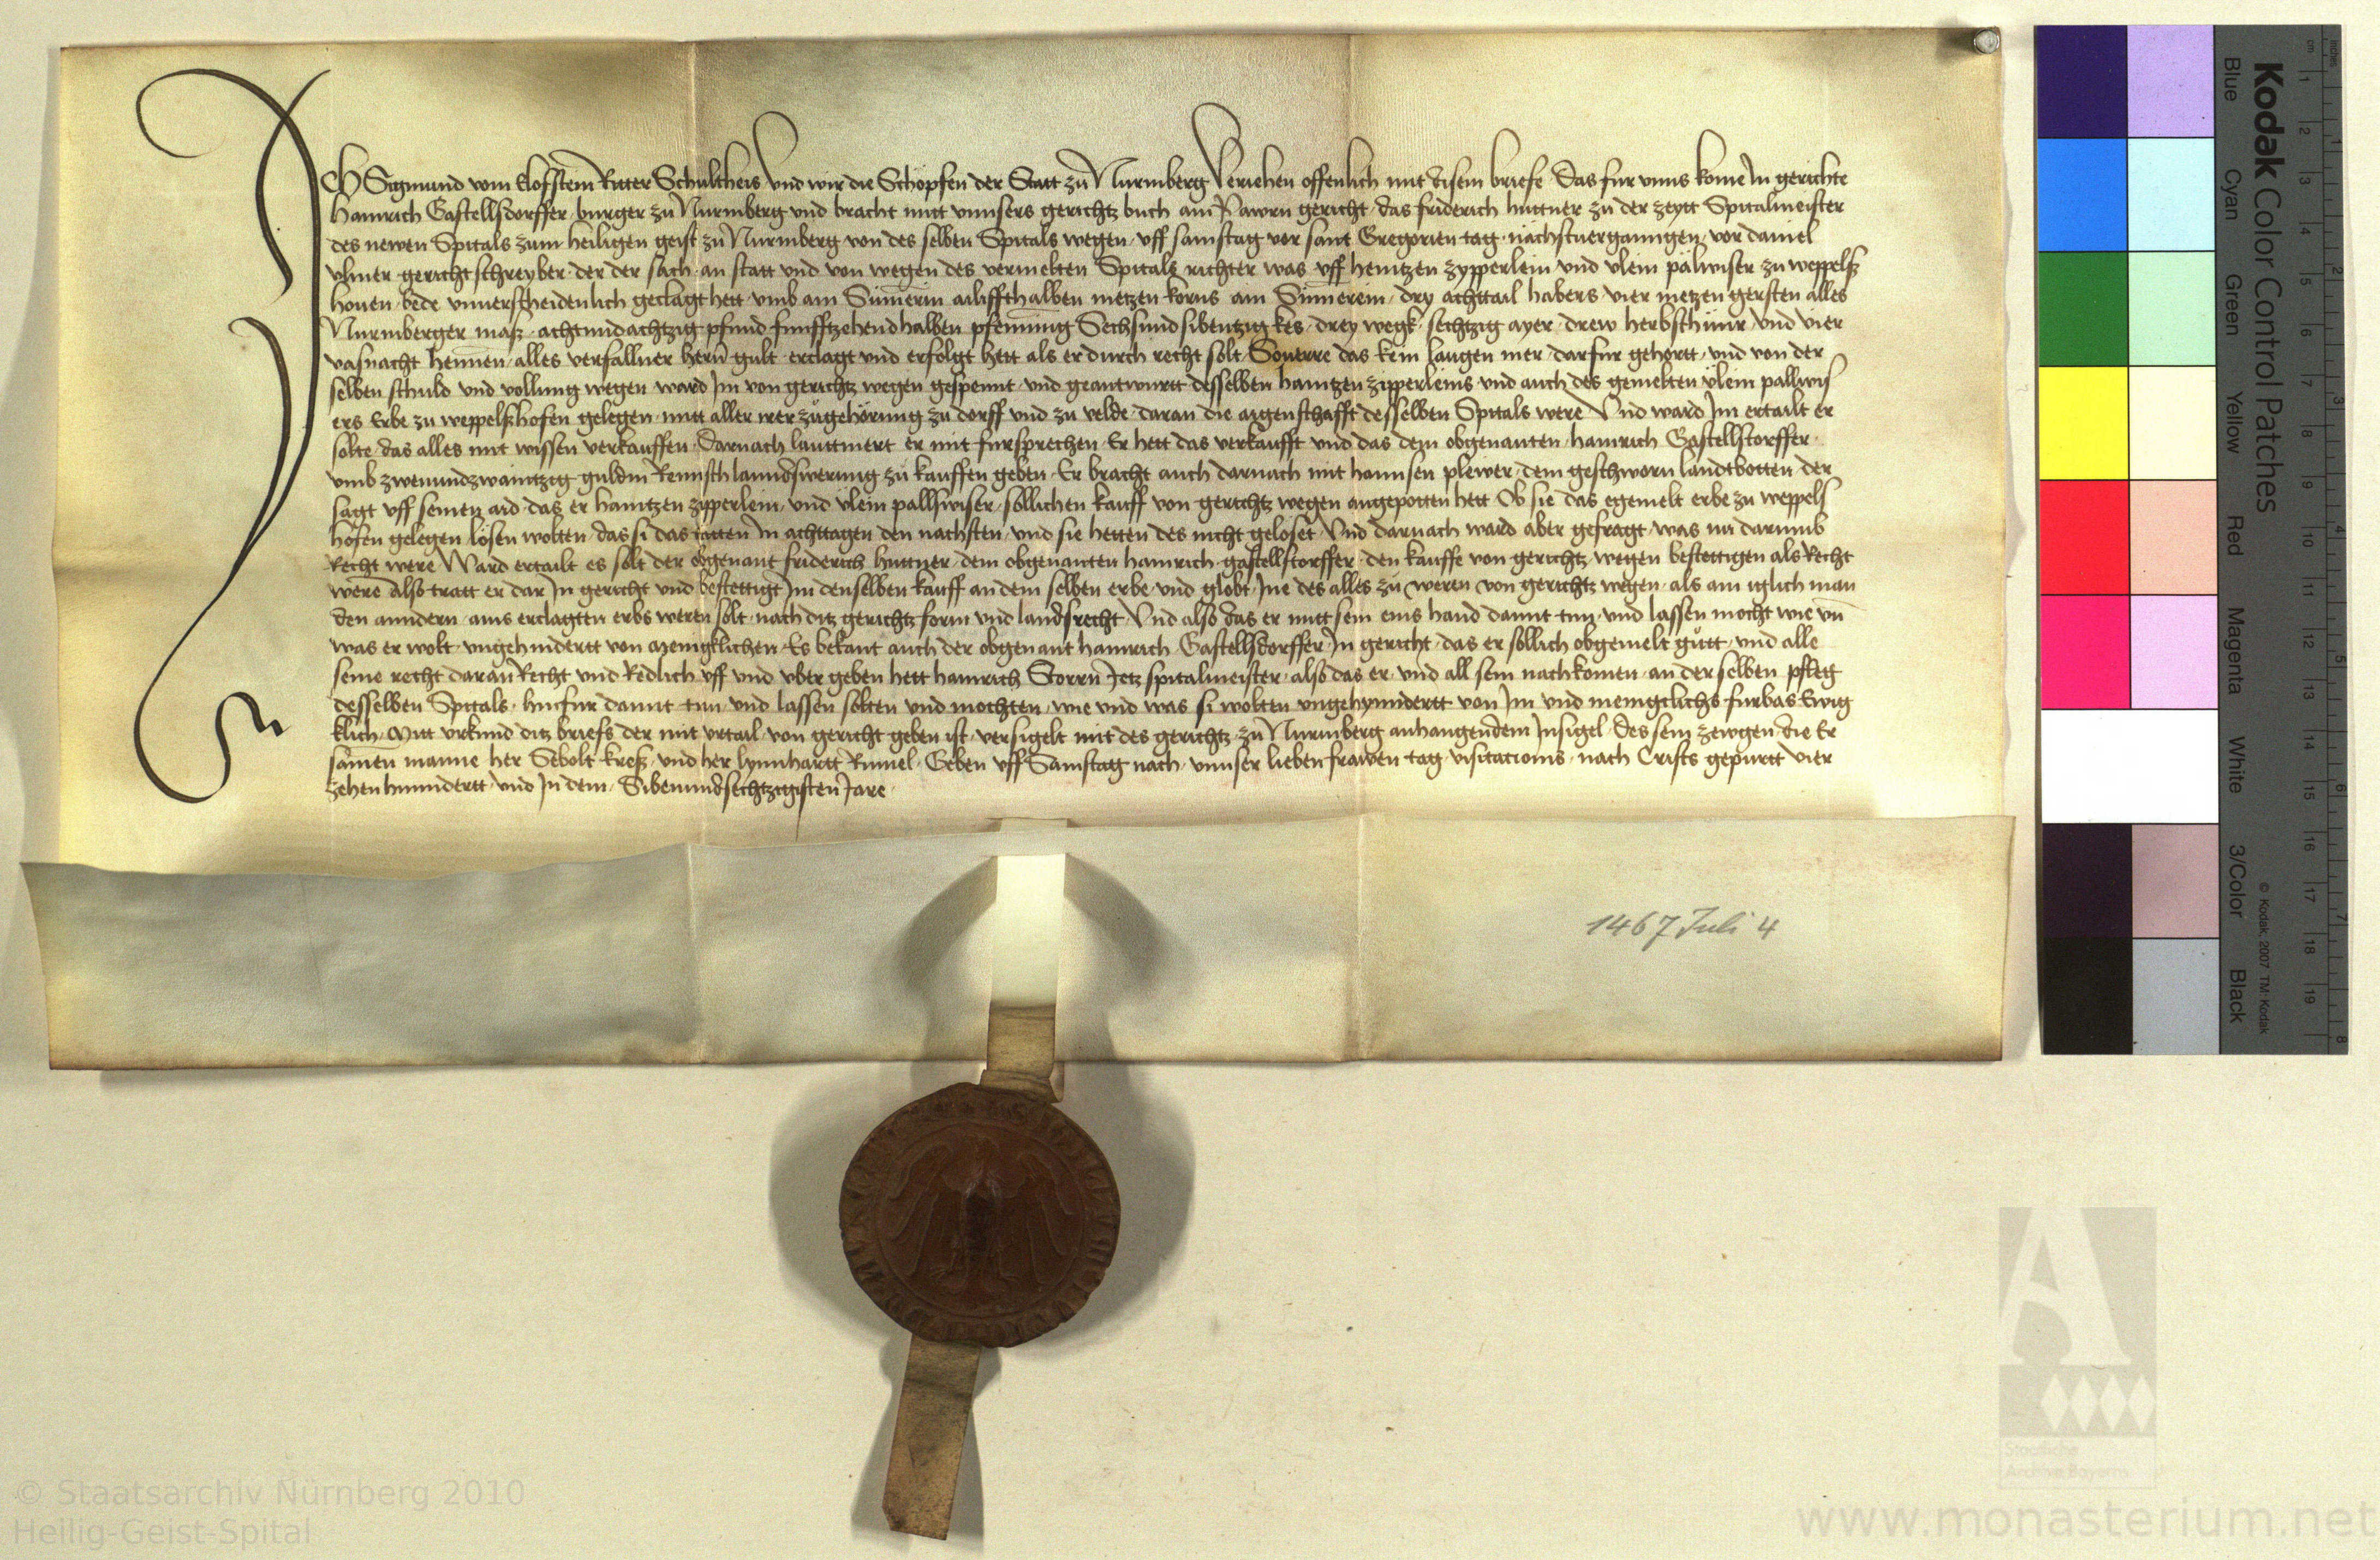 ICH Sigmund vom Eglofstein Ritter Schultheis Und wir die Schopfen der Statt zu Nurmberg Veriehen offenlich mit disem briefe Das fur unns kome In gerichte
Hainrich Gastellsdorffer burger zu Nurmberg und bracht mitt unnsers gerichtz buch am Pawrn gericht das friderich huttner zu der zeytt Spitalmeister
des newen Spitals zum heiligen geist zu Nurmberg von des selben Spitals wegen uff samstag vor sant Gregorien tag nachstuergangen vor daniel
ulmer gerichtschreyber der der sach an statt und von wegen des vermelten Spitals richter was uff heintzen zypperlein und ulein palwiser zu weppelß
houen bede unuerscheidenlich geclagt hett umb ain Sümerin ailiffthalben metzen korns ain Sümerein dry achttail habers vier metzen gersten alles
Nurmberger maß achtundachtzig pfund funfftzehendhalben pfenning Sechsundsibentzig kes drey wegk sechtzig ayer drew herbsthünr und vier
vasnacht hennen alles verfallner herñ gult erclagt und erfolgt hett als er durch recht solt Souerre das kein laugen mer darfur gehortt und von der
selben schuld und vollung wegen ward Im von gerichtz wegen gespennt und geantwurtt desselben haintzen zipperleins und auch des gemelten ülein pallwis
ers Erbe zu weppelßhofen gelegen mitt aller irer zugehörung zu dorff und zu velde daran die aigenschafft desselben Spitals were Und ward Im ertailt er
solte das alles mit wissen verkauffen Darnach lauttmert er mit fursprechen Er hett das verkaufft und das dem obgenanten hainrich Gastellstorffer
umb zwenundzwaintzig guldin Reinisch lanndswerung zu kauffen geben Er bracht auch darnach mit hannsen plewer dem geschworn landtbotten der
sagt uff seinen aid das er haintzen zipperlein und ülein pallswiser sollichen kauff von gerichtz wegen angepotten hett Ob sie das egemelt erbe zu weppels
hofen gelegen lösen wolten das si das tatten In achttagen den nachsten und sie hetten des nicht geloset Und darnach ward aber gefragt was nu darumb
Recht were Ward ertailt es solt der obgenant friderich huttner dem obgenanten hainrich gastellstorffer den kauffe von gerichtz wegen bestettigen als Recht
were Also tratt er dar In gericht und bestettigt Im denselben kauff an dem selben erbe und globt Ine des alles zu weren von gerichtz wegen als ain iglich man
den anndern ains erclagten erbs weren solt nach ditz gerichtz form und landsrecht Und also das er mitt sein eins hand damit tun und lassen mocht wie uñ
was er wolt ungehindertt von meniglichen Es bekant auch der obgenant hainrich Gastellsdorffer In gericht das er sollich obgemelt gutt und alle
seine recht daran Recht und Redlich uff und uber geben hett hainrich Storrñ Jetz spitalmeister also das er und all sein nachkomen an der selben pfleg
desselben Spitals hinfur damit tun und lassen solten und mochten wie und was si wolten ungehynndertt von Im und meniglichs furbas Ewig
klich Mitt urkund ditz briefs der mit urtail von gericht geben ist versigelt mit des gerichtz zu Nurmberg anhangendem Insigel Des sein zewgen die Er
samen manne her Sebolt kreß und her lynnhartt Rumel Geben uff Samstag nach unnser lieben frawen tag visitacionis nach Crists gepurtt vier
zehenhunndertt und In dem Sibenundsechtzigisten Jare
1467 Juli 4
Kodak Color Control Patches
Blue Cyan Green Yellow Red Magenta White 3/Color Black
© Kodak, 2007 TM: Kodak
cm 1 2 3 4 5 6 7 8 9 10 11 12 13 14 15 16 17 18 19
inches 1 2 3 4 5 6 7 8
Staatliche
Archive Bayerns
© Staatsarchiv Nürnberg 2010
Heilig-Geist-Spital
www.monasterium.net